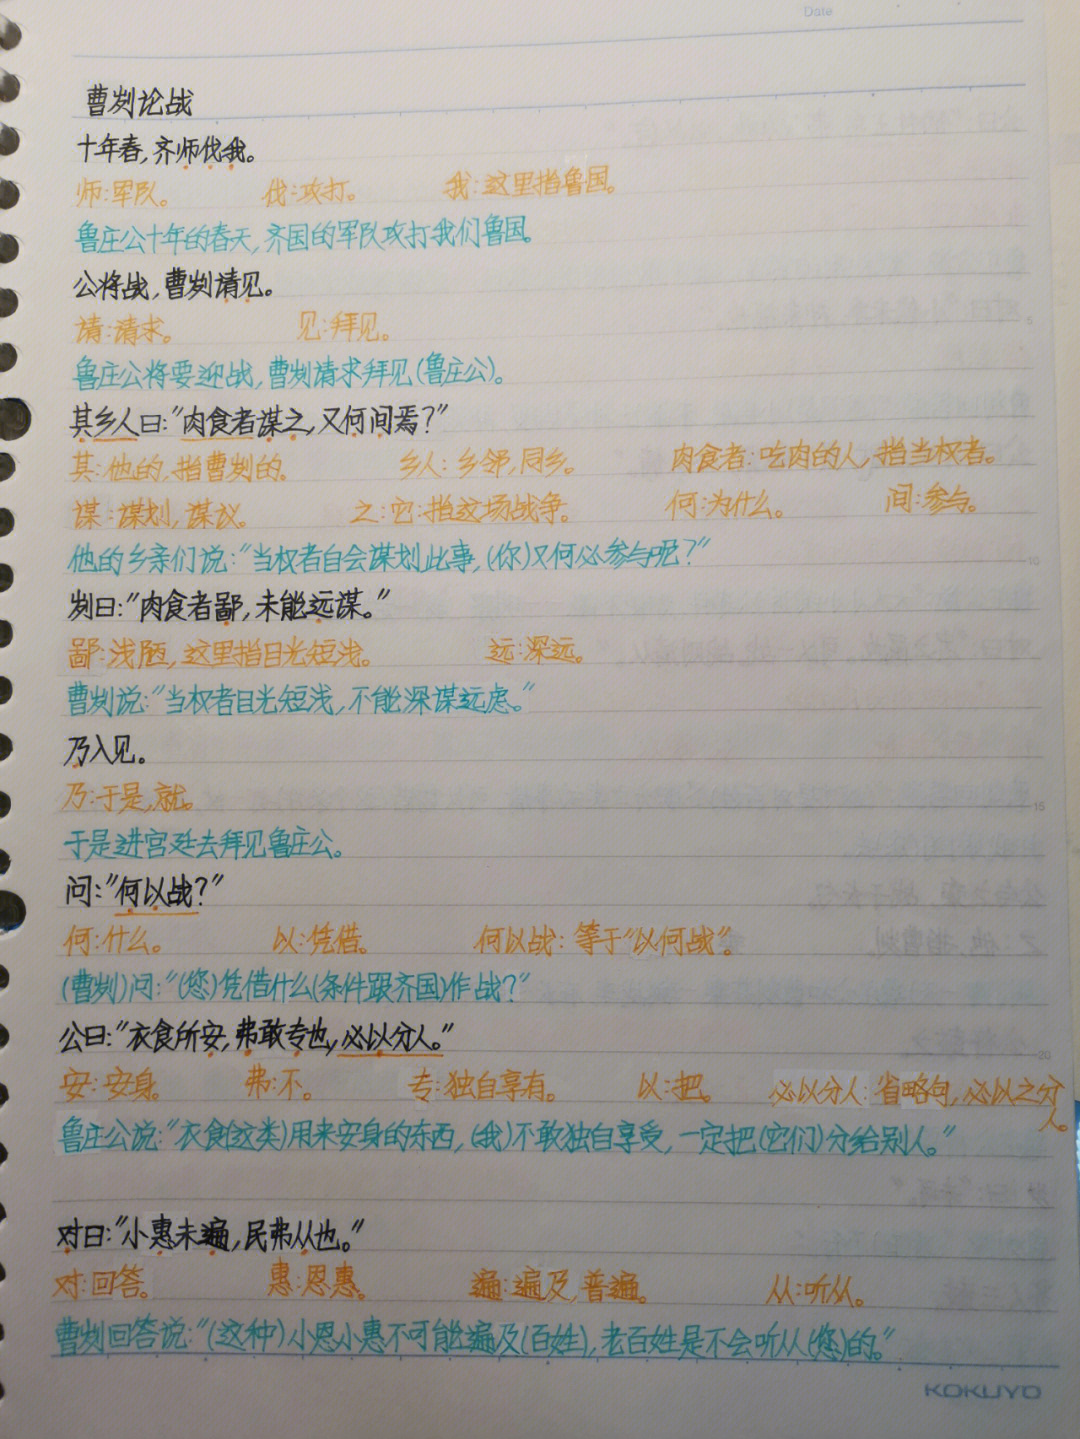 Date
曹刿论战
十年春,齐师伐我。
师:军队。 伐:攻打。 我:这里指鲁国。
鲁庄公十年的春天,齐国的军队攻打我们鲁国。
公将战,曹刿请见。
请:请求。 见:拜见。
鲁庄公将要迎战,曹刿请求拜见(鲁庄公)。
其乡人曰:"肉食者谋之,又何间焉?"
其:他的,指曹刿的。 乡人:乡邻,同乡。 肉食者:吃肉的人,指当权者。
谋:谋划,谋议。 之:它:指这场战争。 何:为什么。 间:参与。
他的乡亲们说:"当权者自会谋划此事,(你)又何必参与呢?"
刿曰:"肉食者鄙,未能远谋。"
鄙:浅陋,这里指目光短浅。 远:深远。
曹刿说:"当权者目光短浅,不能深谋远虑。"
乃入见。
乃:于是,就。
于是进宫廷去拜见鲁庄公。
问:"何以战?"
何:什么。 以:凭借。 何以战:等于"以何战"。
(曹刿)问:"(您)凭借什么(条件跟齐国)作战?"
公曰:"衣食所安,弗敢专也,必以分人。"
安:安身。 弗:不。 专:独自享有。 以:把。 必以分人:省略句,必以之分人。
鲁庄公说:"衣食(这类)用来安身的东西,(我)不敢独自享受,一定把(它们)分给别人。"
对曰:"小惠未遍,民弗从也。"
对:回答。 惠:恩惠。 遍:遍及,普遍。 从:听从。
曹刿回答说:"(这种)小恩小惠不可能遍及(百姓),老百姓是不会听从(您)的。"
KOKUYO